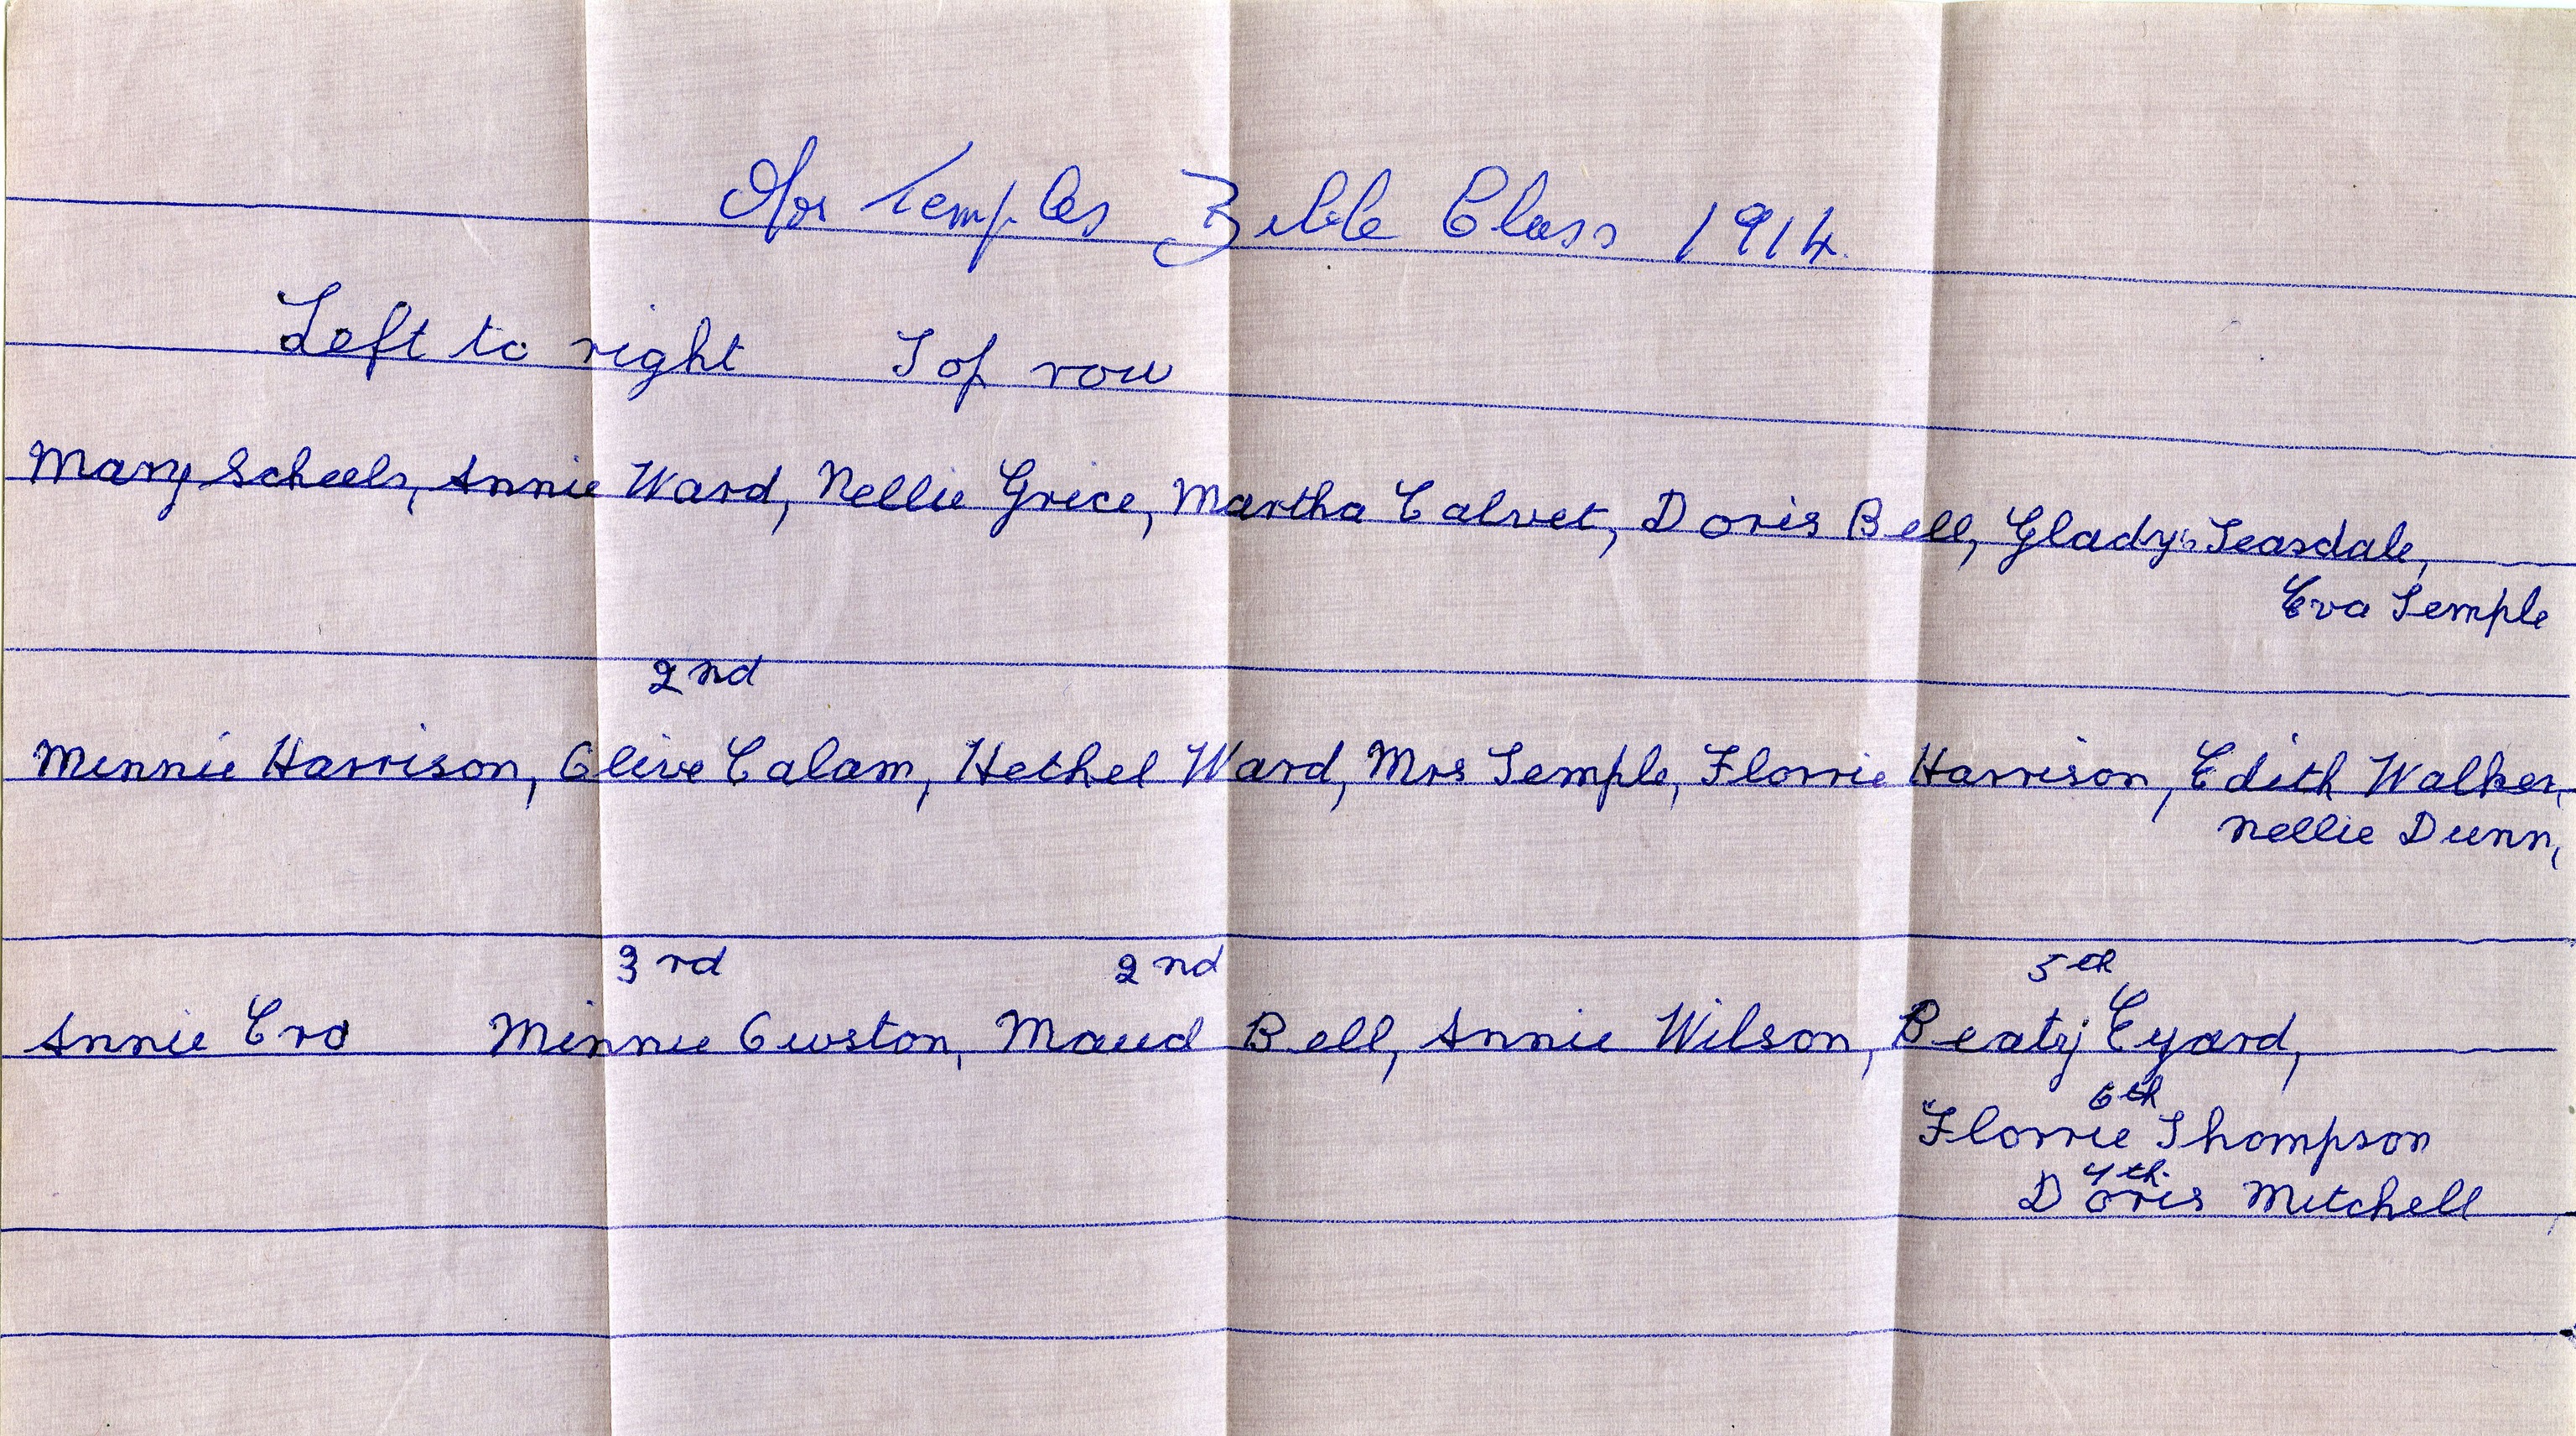 Mrs Temples Bible Class 1914.
Left to right Top row
Mary Scheels, Annie Ward, Nellie Grice, Martha Calvet, Doris Bell, Gladys Teasdale,
Eva Temple
2nd
Minnie Harrison, Olive Calam, Hethel Ward, Mrs Temple, Florrie Harrison, Edith Walker,
Nellie Dunn,
3rd 2nd 5th
Annie Minnie Owston, Maud Bell, Annie Wilson, Beaty Eyard,
6th
Florrie Thompson
4th.
Doris Mitchell